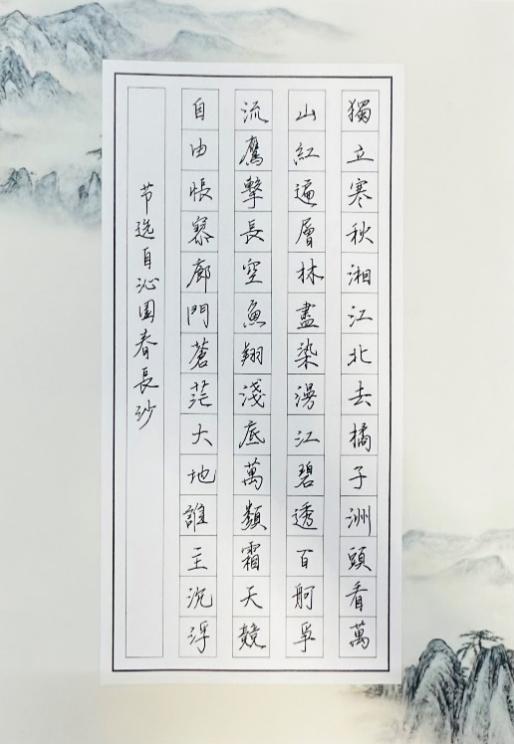 獨立寒秋湘江北去橘子洲頭看萬
山紅遍層林盡染漫江碧透百舸爭
流鷹擊長空魚翔淺底萬類霜天競
自由悵寥廓門蒼茫大地誰主沉浮
节选自沁園春長沙